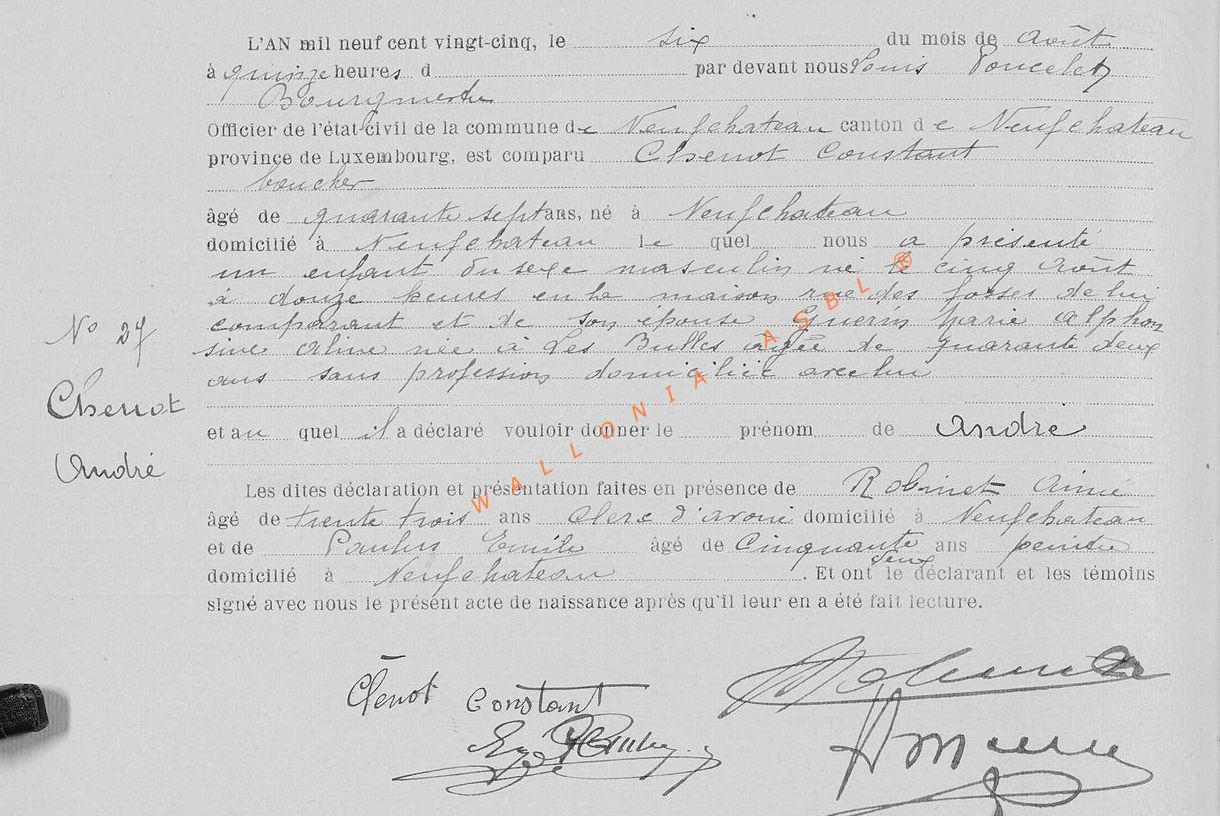 L'AN mil neuf cent vingt-cinq, le six du mois de Août
à quinze heures d par devant nous Louis Poncelet
Bourgmestre
Officier de l'état-civil de la commune de Neufchateau canton de Neufchateau
province de Luxembourg, est comparu Chenot Constant
boucher
âgé de quarante sept ans, né à Neufchateau
domicilié à Neufchateau le quel nous a présenté
un enfant du sexe masculin né le cinq Août
à douze heures en la maison rue des fosses de lui
comparant et de son epouse Guerin Marie Alphon
sine Aline née à Les Bulles agée de quarante deux
ans sans profession domiciliée avec lui
No 27
Chenot
André
et au quel il a déclaré vouloir donner le prénom de André
Les dites déclaration et présentation faites en présence de Robinet Aimé
âgé de trente trois ans Clerc d'avoué domicilié à Neufchateau
et de Paulus Emile âgé de Cinquante deux ans peintre
domicilié à Neufchateau . Et ont le déclarant et les témoins
signé avec nous le présent acte de naissance après qu'il leur en a été fait lecture.
Chenot Constant
WALLONIA ASBL ®